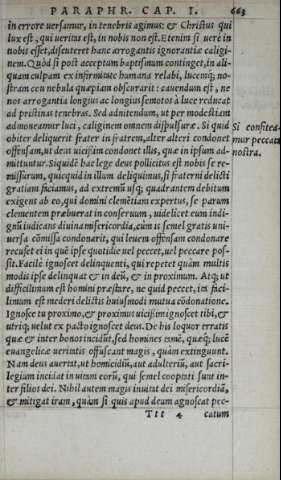 PARAPHR. CAP. I. 663
in errore uersamur, in tenebris agimus: & Christus qui
lux est, qui ueritas est, in nobis non est. Etenim si uere in
nobis esset, discuteret hanc arrogantis ignorantiæ caligi-
nem. Quòd si post acceptum baptismum continget, in ali-
quam culpam ex infirmitate humana relabi, lucemq; no-
stram ceu nebula quæpiam obscurarit: cauendum est, ne
nos arrogantia longius ac longius semotos à luce reducat
ad pristinas tenebras. Sed adnitendum, ut per modestiam
admoneamur luci, caliginem omnem dispulsuræ. Si quid
obiter deliquerit frater in fratrem, alter alteri condonet
offensam, ut deus uicissim condonet illis, quæ in ipsum ad-
mittuntur. Siquidē hac lege deus pollicitus est nobis se re-
missurum, quicquid in illum deliquimus, si fraterni delicti
gratiam ficiamus, ad extremū usq; quadrantem debitum
exigens ab eo, qui domini clemētiam expertus, se parum
clementem præbuerat in conseruum, uidelicet eum indi-
gnū iudicans diuina misericordia, cum is semel gratis uni-
uersa cōmissa condonarit, qui leuem offensam condonare
recuset ei in quē ipse quotidie uel peccet, uel peccare pos-
sit. Facilè ignoscet delinquenti, qui repetet quàm multis
modis ipse delinquat & in deū, & in proximum. Atq; ut
difficilimum est homini præstare, ne quid peccet, ita faci-
limum est mederi delictis huiusmodi mutua cōdonatione.
Ignosce tu proximo, & proximus uicissim ignoscet tibi, &
utriq; uelut ex pacto ignoscet deus. De his loquor erratis
quæ & inter bonos incidūt, sed homines tamē, quæq; lucē
euangelicæ ueritatis offuscant magis, quàm extinguunt.
Nam deus auertat, ut homicidiū, aut adulteriū, aut sacri-
legium incidat in uitam eorū, qui semel cooptati sunt in-
ter filios dei. Nihil autem magis inuitat dei misericordiā,
& mitigat iram, quàm si quis apud deum agnoscat pec-
Ttt 4 catum
Si confitea-
mur peccata
nostra.